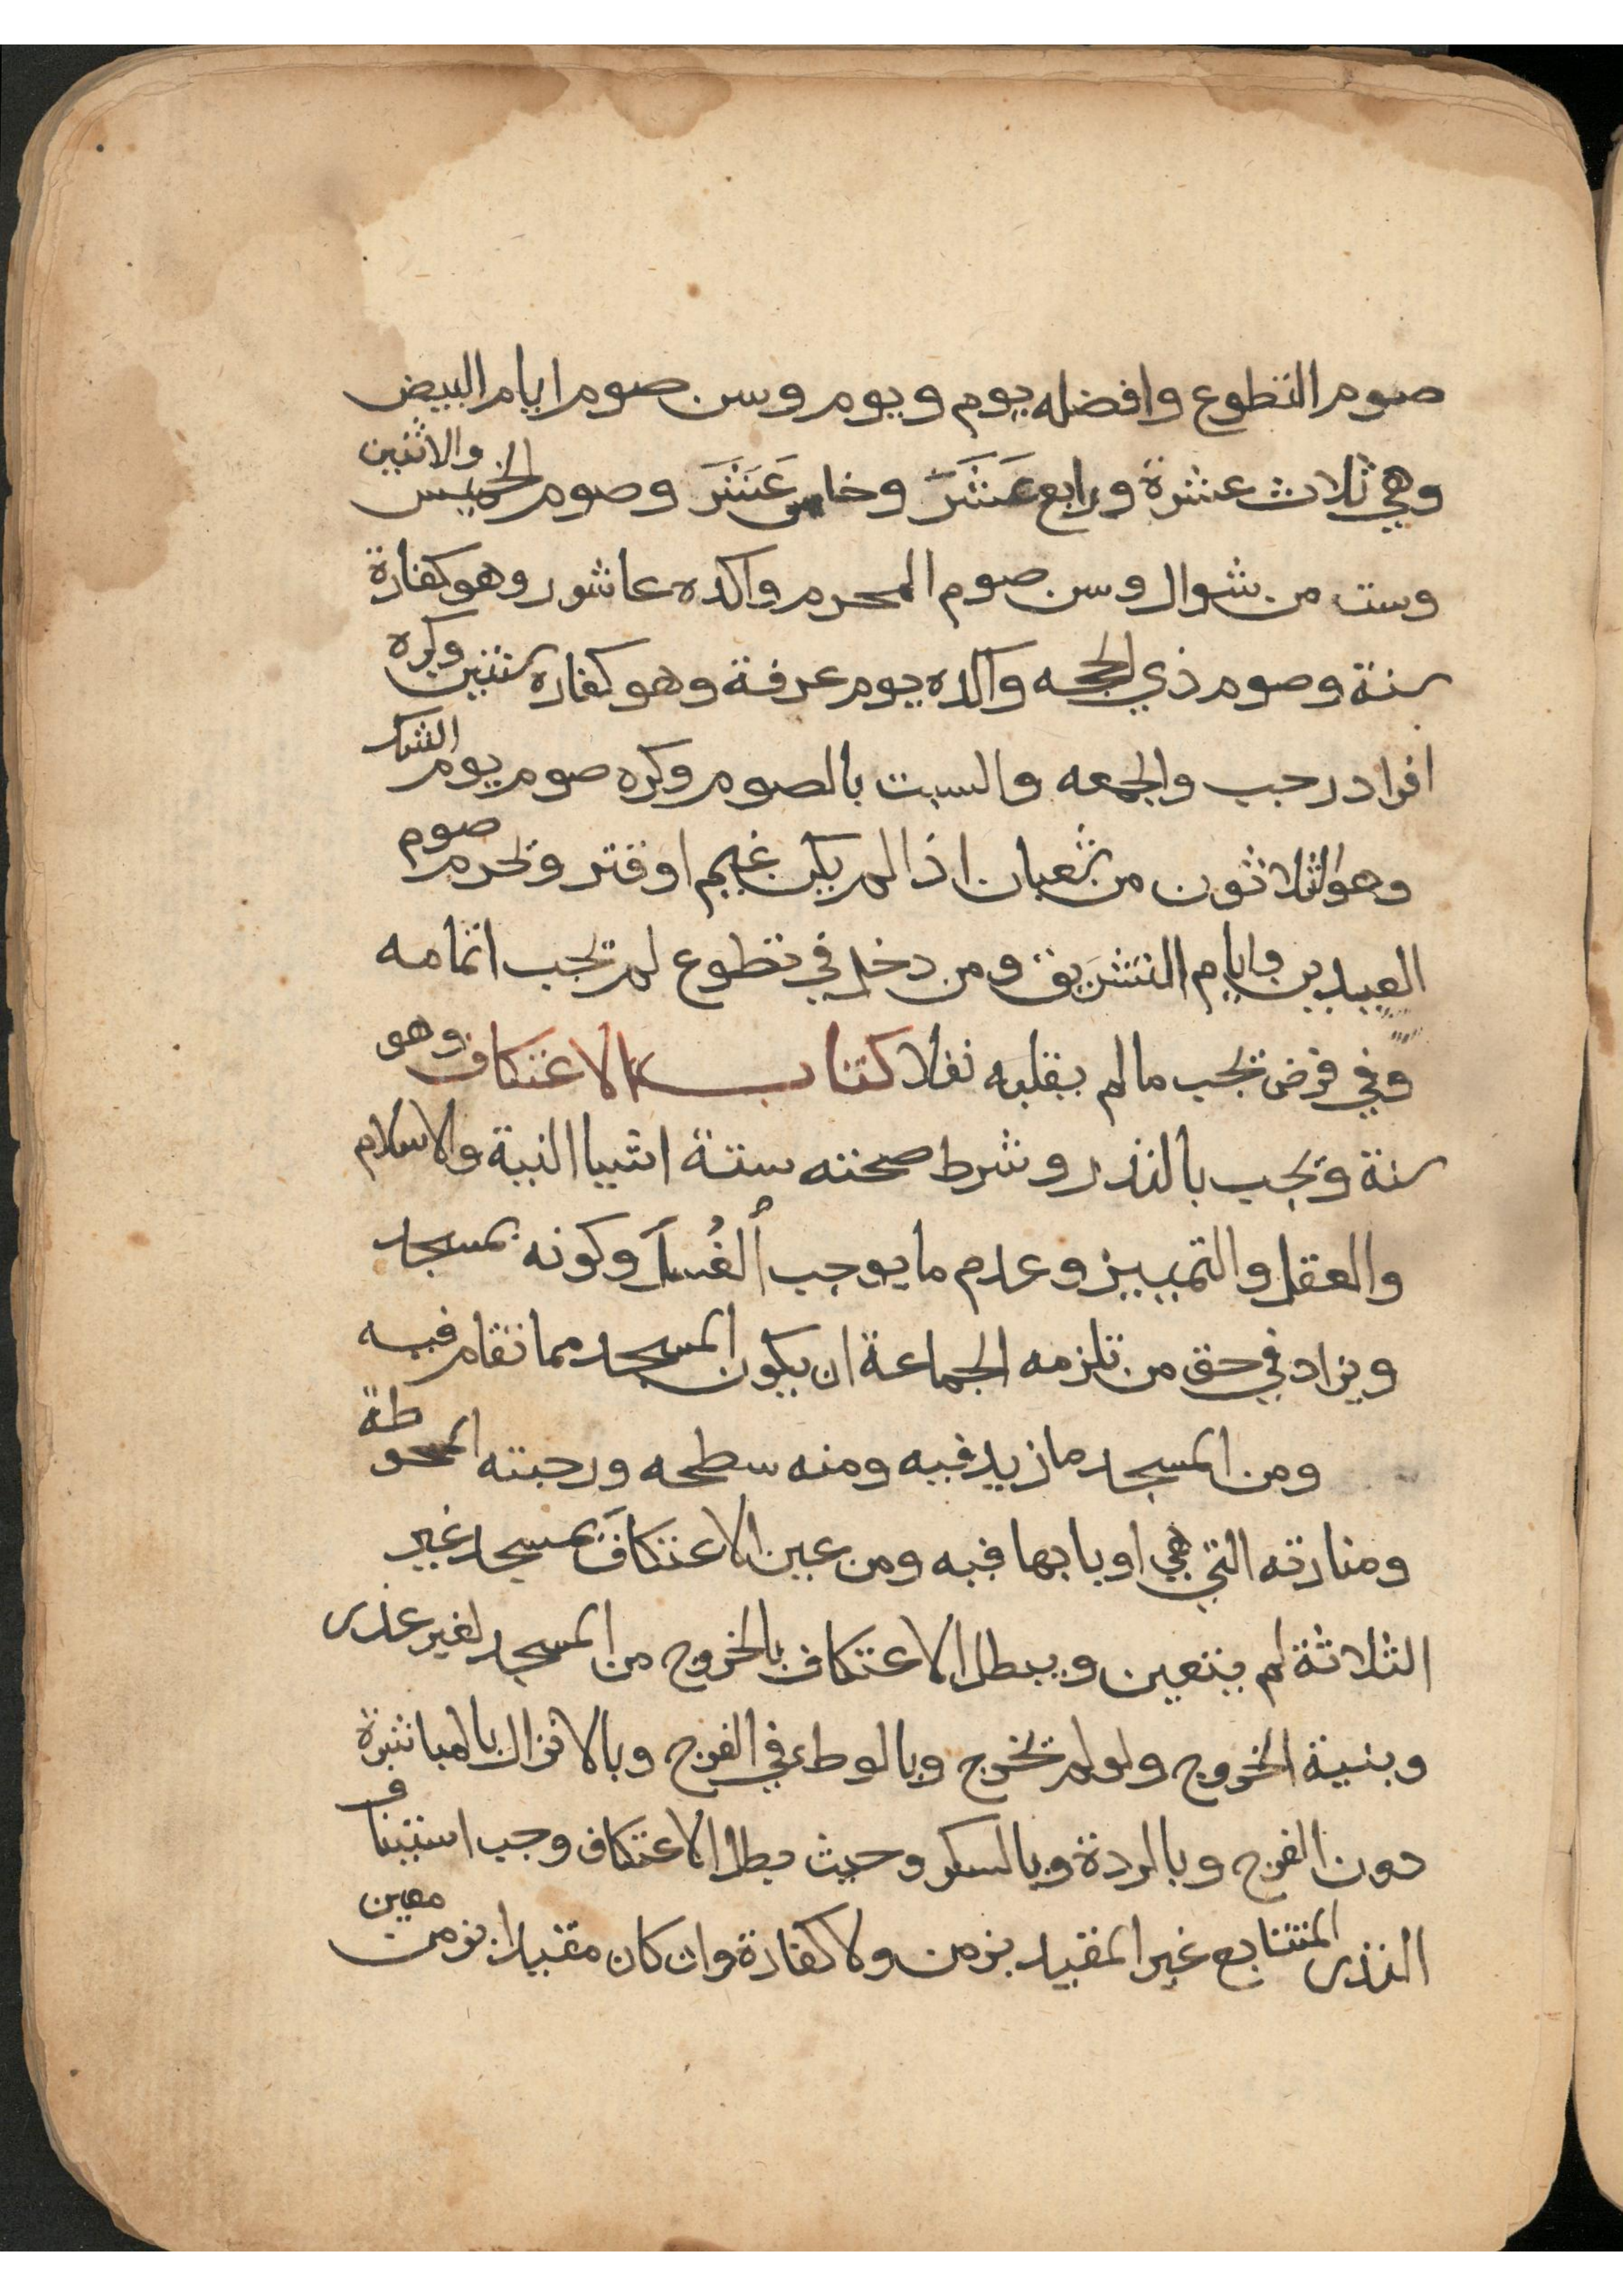 صوم التطوع وافضله يوم ويوم وسن صوم ايام البيض
وهي ثلاث عشرة ورابع عَشَرَ وخامس عَشَرَ وصوم الخميس والاثنين
وست من شوال وسن صوم المحرم واكده عاشور وهو كفارة
سنة وصوم ذي الحجه وآكده يوم عرفة وهو كفاره سنتين وكره
افراد رجب والجمعه والسبت بالصوم وكره صوم يوم الشك
وهو الثلاثون من شعبان اذا لم يكن غيم او قتر ويحرم صوم
العيدين وايام التشريق ومن دخل في تطوع لم يجب اتمامه
وفي فرض يجب ما لم يقلبه نفلا كتاب الاعتكاف وهو
سنة ويجب بالنذر وشرط صحته ستة اشيا النية والاسلام
والعقل والتمييز وعدم ما يوجب الغُسل وكونه بمسجد
ويزاد في حق من تلزمه الجماعة ان يكون المسجد مما تقام فيه
ومن المسجد ما زيد فيه ومنه سطحه ورحبته المحوطة
ومنارته التي هي او بابها فيه ومن عين الاعتكاف بمسجد غير
الثلاثة لم يتعين ويبطل الاعتكاف بالخروج من المسجد لغير عذر
وبنية الخروج ولو لم يخرج وبالوطء في الفرج وبالانزال بالمباشرة
دون الفرج وبالردة وبالسكر وحيث بطل الاعتكاف وجب استيناف
النذر المتتابع غير المقيد بزمن ولا كفارة وان كان مقيدا بزمن معين